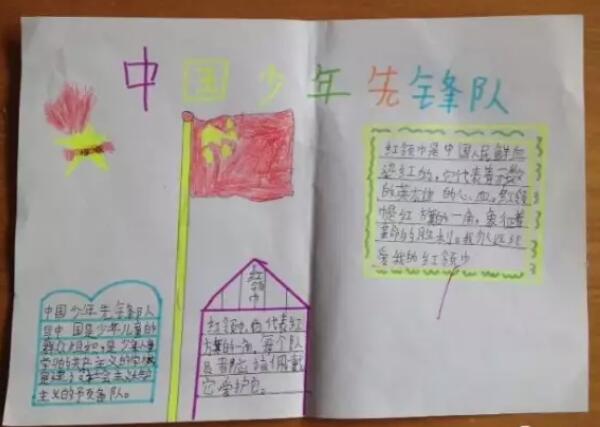 中国少年先锋队
红领巾是中国人民鲜血
染红的,它代表着无数
的英雄的心血,红领
巾是红旗的一角,象征着
革命的胜利。我永远
爱我的红领巾
红领巾
红领巾,它代表红
旗的一角,每个队
员都应该佩戴
它爱护它。
中国少年先锋队
是中国是少年儿童的
群众组织,是少年儿童
学习的共产主义的学校
是建设社会主义
主义的予备队。